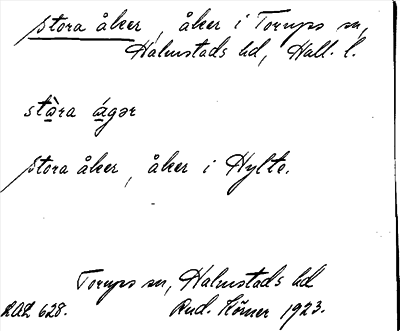 stora åker, åker i Torups sn,
Halmstads hd, Hall. l.
stàra ágər
stora åker, åker i Hylte.
Torups sn, Halmstads hd
DAL 628. Rud. Körner 1923.